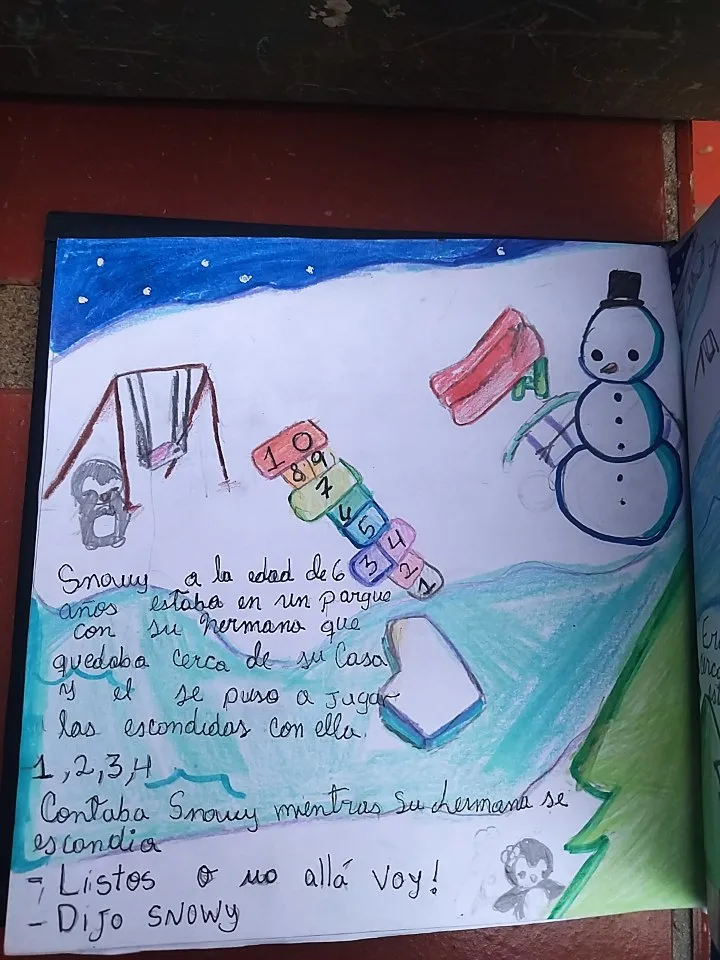 10
8 9
7
6
5
4
3
2
1
Snowy a la edad de 6
años estaba en un parque
con su hermana que
quedaba cerca de su Casa
y el se puso a jugar
las escondidas con ella.
1,2,3,4
Contaba Snowy mientras su hermana se
escondia
-¡Listos o no allá voy!
- Dijo SNOWY